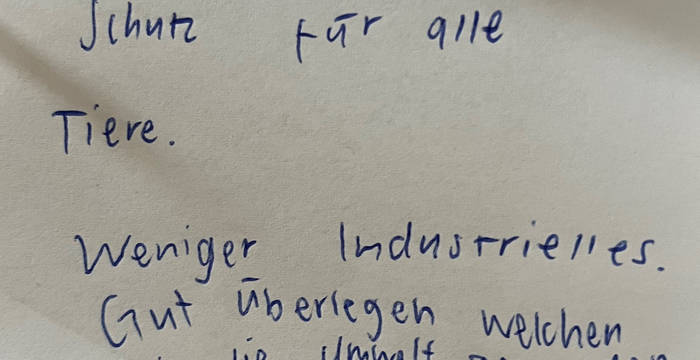 Schutz für alle
Tiere.
Weniger Industrielles.
Gut überlegen welchen
die Umwelt